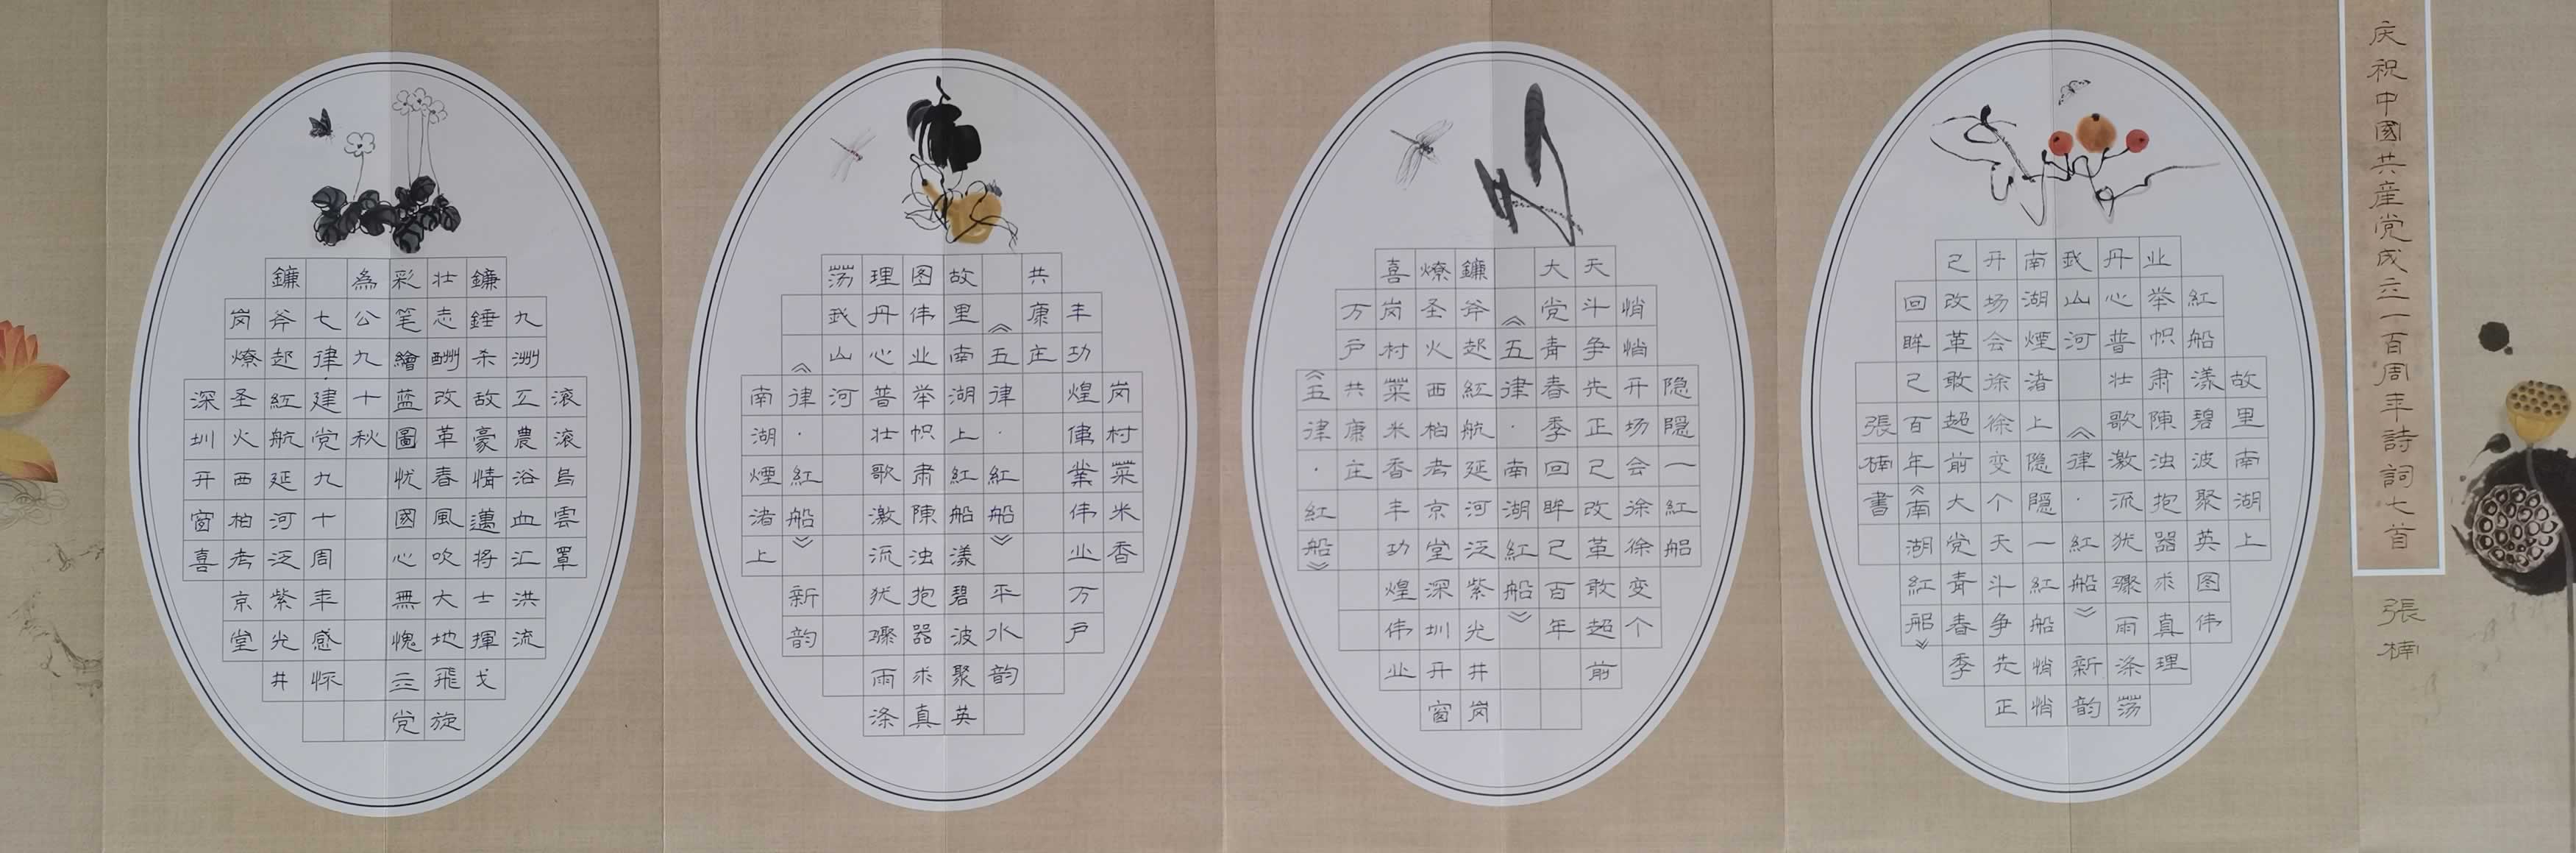 庆祝中國共産党成立一百周年詩詞七首
張楠
故里南湖上
紅船漾碧波聚英图伟
业举帜肃陳浊抱器求真理
丹心普壮歌激流犹骤雨涤荡
我山河《律·紅船》新韵
南湖煙渚上隐隱一紅船悄悄
开场会徐徐变个天斗争先正
己改革敢超前大党青春季
回眸己百年《南湖紅船》
張楠書
隐隱一紅船
悄悄开场会徐徐变个
天斗争先正己改革敢超前
大党青春季回眸己百年
《五律·南湖紅船》
鐮斧起紅航延河泛紫光井岗
燎圣火西柏考京堂深圳开窗
喜岗村菜米香丰功煌伟业
万户共康庄
《五律·紅船》
岗村菜米香
丰功煌律業伟业万户
共康庄
《五律·紅船》平水韵
故里南湖上紅船漾碧波聚英
图伟业举帜肃陳浊抱器求真
理丹心普壮歌激流犹骤雨涤
荡我山河
《律·紅船》新韵
南湖煙渚上
滚滚烏雲罩
九洲工農浴血汇洪流
鐮錘杀敌豪情邁将士揮戈
壮志酬改革春風吹大地飛旋
彩笔繪蓝圖忧國心無愧立党
為公九十秋
七律·建党九十周年感怀
鐮斧起紅航延河泛紫光井
岗燎圣火西柏考京堂
深圳开窗喜